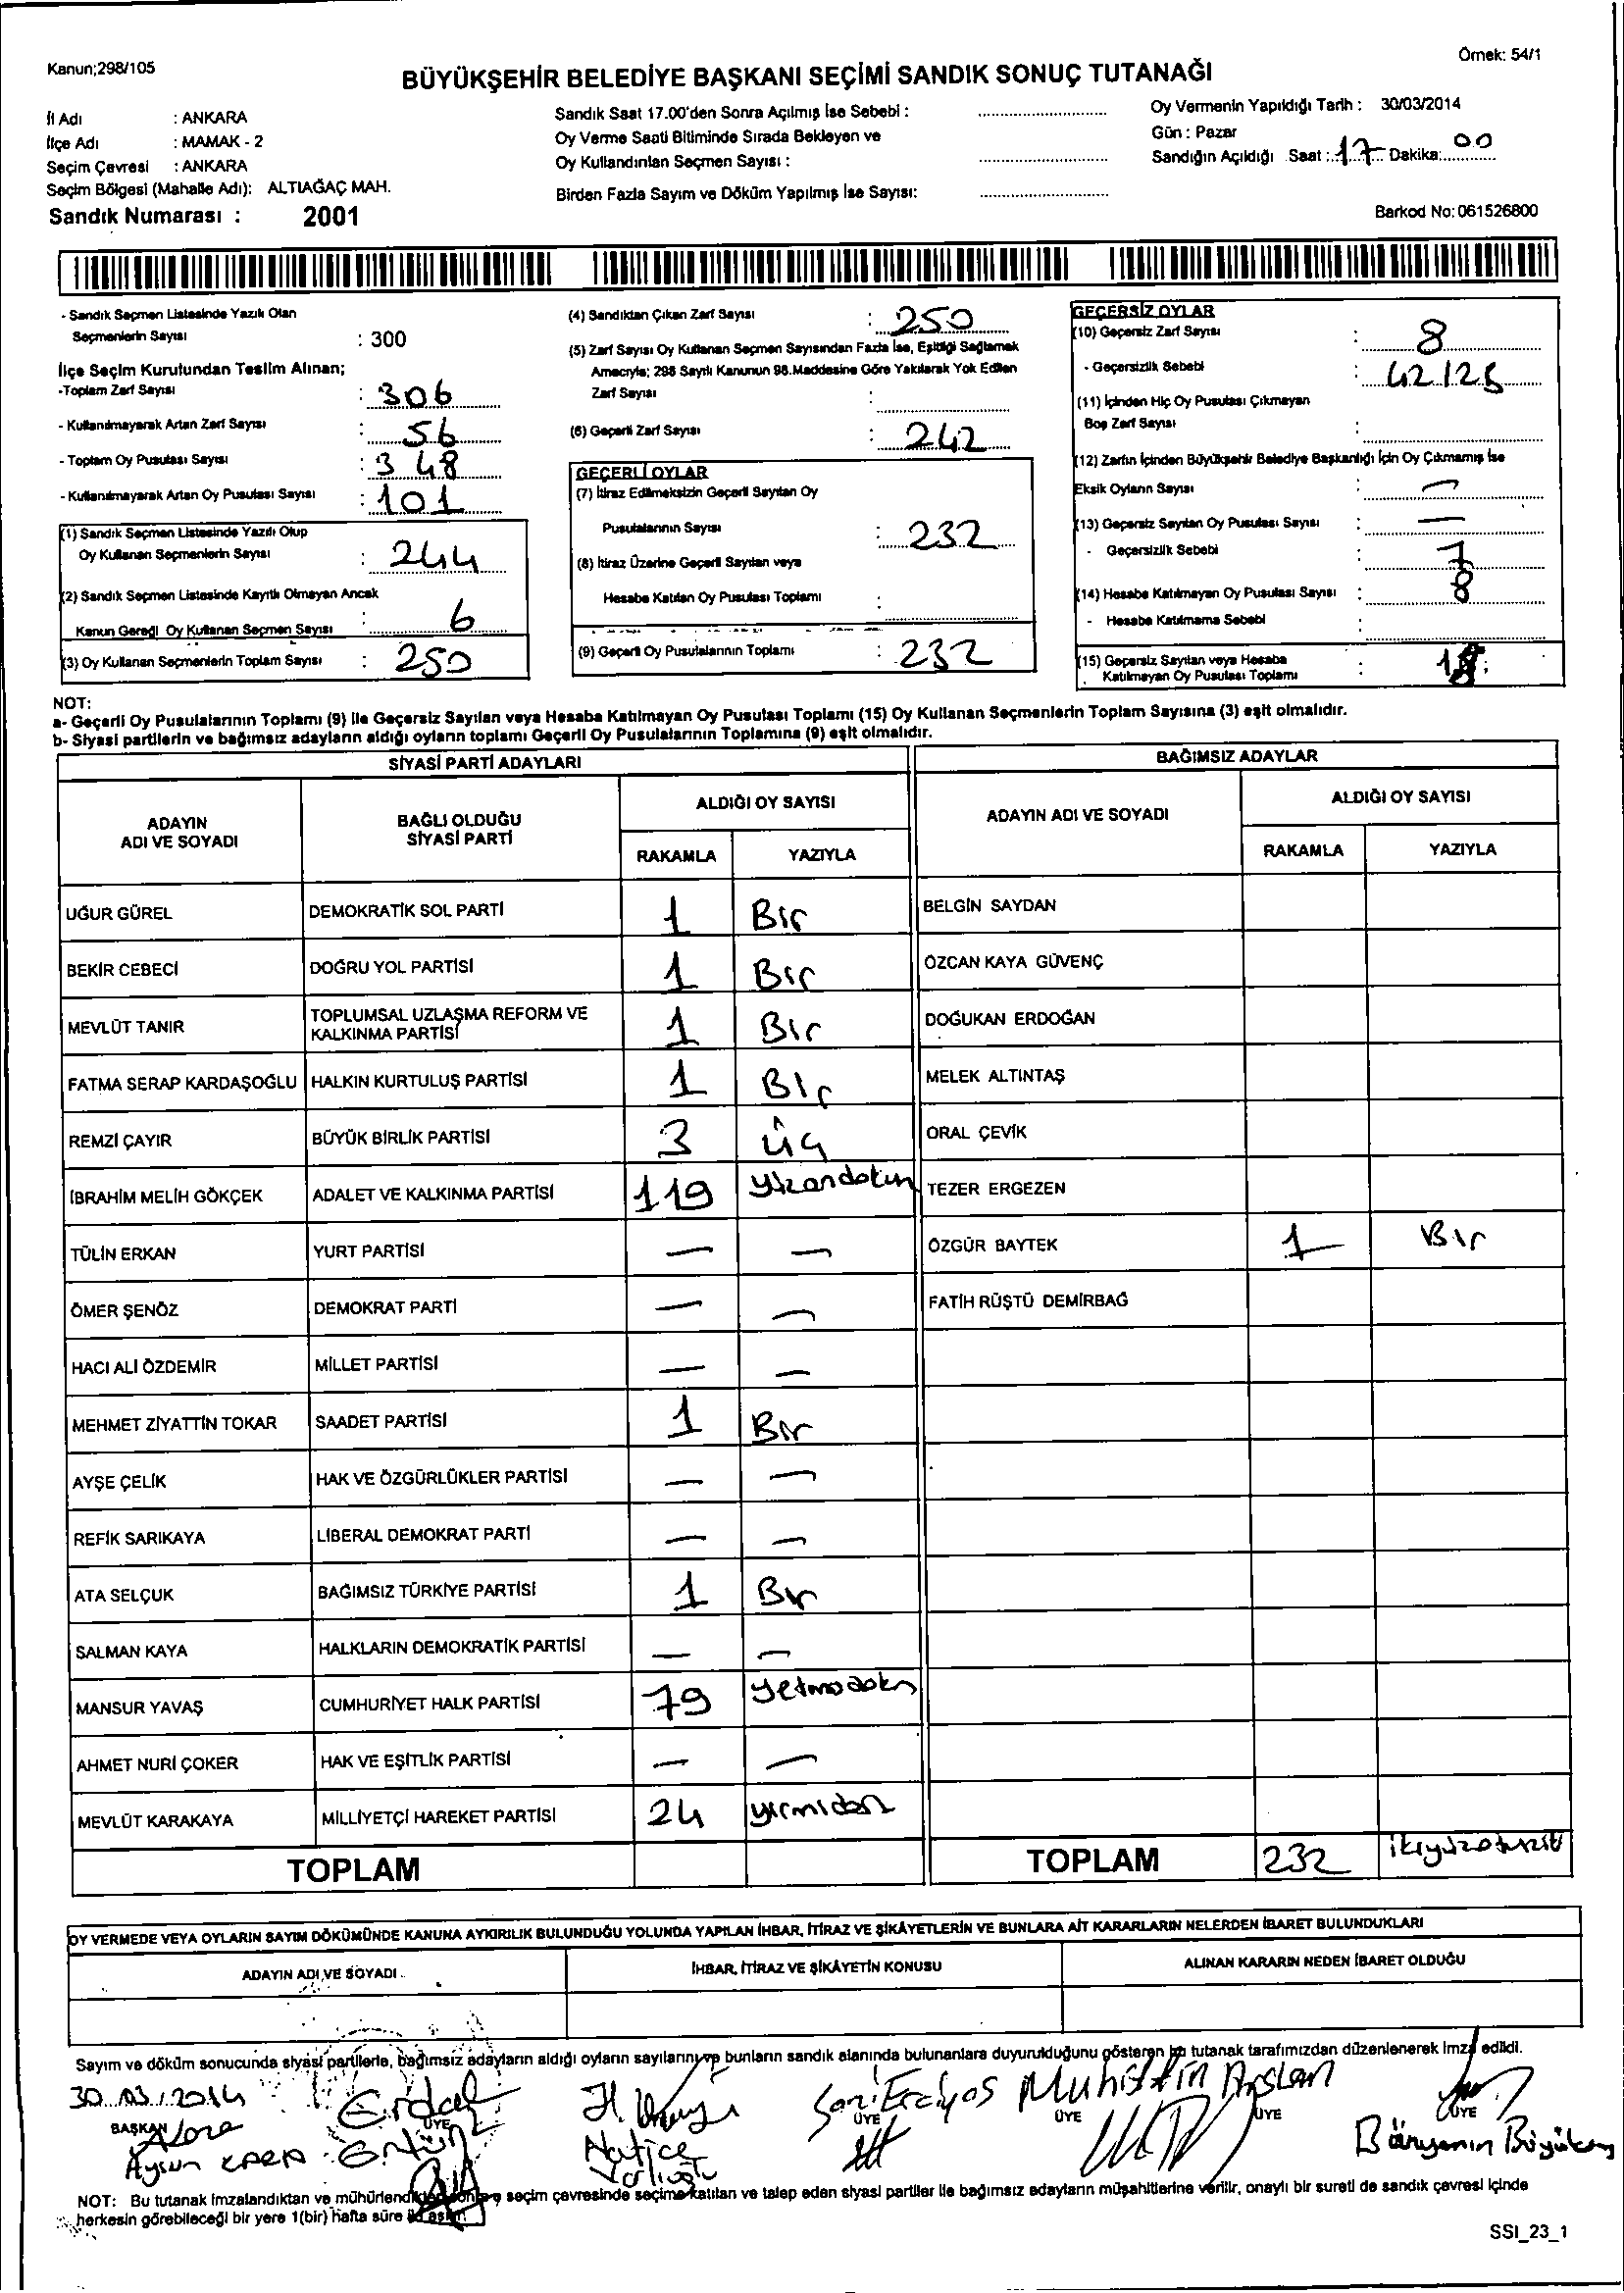 Kanun;298/105
Örnek: 54/1
BÜYÜKŞEHİR BELEDİYE BAŞKANI SEÇİMİ SANDIK SONUÇ TUTANAĞI
İl Adı : ANKARA
İlçe Adı : MAMAK - 2
Seçim Çevresi : ANKARA
Seçim Bölgesi (Mahalle Adı): ALTIAĞAÇ MAH.
Sandık Numarası : 2001
Sandık Saat 17.00'den Sonra Açılmış İse Sebebi :
Oy Verme Saati Bitiminde Sırada Bekleyen ve
Oy Kullandırılan Seçmen Sayısı :
Birden Fazla Sayım ve Döküm Yapılmış İse Sayısı:
Oy Vermenin Yapıldığı Tarih : 30/03/2014
Gün : Pazar
Sandığın Açıldığı Saat : 17 Dakika: 00
Barkod No: 061526800
- Sandık Seçmen Listesinde Yazılı Olan
Seçmenlerin Sayısı : 300
İlçe Seçim Kurulundan Teslim Alınan;
-Toplam Zarf Sayısı : 306
- Kullanılmayarak Artan Zarf Sayısı : 56
- Toplam Oy Pusulası Sayısı : 348
- Kullanılmayarak Artan Oy Pusulası Sayısı : 101
(1) Sandık Seçmen Listesinde Yazılı Olup
Oy Kullanan Seçmenlerin Sayısı : 244
(2) Sandık Seçmen Listesinde Kayıtlı Olmayan Ancak
Kanun Gereği Oy Kullanan Seçmen Sayısı : 6
(3) Oy Kullanan Seçmenlerin Toplam Sayısı : 250
(4) Sandıktan Çıkan Zarf Sayısı : 250
(5) Zarf Sayısı Oy Kullanan Seçmen Sayısından Fazla İse, Eşitliği Sağlamak
Amacıyla; 298 Sayılı Kanunun 98.Maddesine Göre Yakılarak Yok Edilen
Zarf Sayısı :
(6) Geçerli Zarf Sayısı : 242
GEÇERLİ OYLAR
(7) İtiraz Edilmeksizin Geçerli Sayılan Oy
Pusulalarının Sayısı : 232
(8) İtiraz Üzerine Geçerli Sayılan veya
Hesaba Katılan Oy Pusulası Toplamı :
(9) Geçerli Oy Pusulalarının Toplamı : 232
GEÇERSİZ OYLAR
(10) Geçersiz Zarf Sayısı : 8
- Geçersizlik Sebebi :
(11) İçinden Hiç Oy Pusulası Çıkmayan
Boş Zarf Sayısı :
(12) Zarfın İçinden Büyükşehir Belediye Başkanlığı İçin Oy Çıkmamış İse
Eksik Oyların Sayısı : —
(13) Geçersiz Sayılan Oy Pusulası Sayısı : —
- Geçersizlik Sebebi : 7
(14) Hesaba Katılmayan Oy Pusulası Sayısı : 8
- Hesaba Katılmama Sebebi :
(15) Geçersiz Sayılan veya Hesaba
Katılmayan Oy Pusulası Toplamı : 18
NOT:
a- Geçerli Oy Pusulalarının Toplamı (9) ile Geçersiz Sayılan veya Hesaba Katılmayan Oy Pusulası Toplamı (15) Oy Kullanan Seçmenlerin Toplam Sayısına (3) eşit olmalıdır.
b- Siyasi partilerin ve bağımsız adayların aldığı oyların toplamı Geçerli Oy Pusulalarının Toplamına (9) eşit olmalıdır.
SİYASİ PARTİ ADAYLARI
ADAYIN ADI VE SOYADI BAĞLI OLDUĞU SİYASİ PARTİ ALDIĞI OY SAYISI
RAKAMLA YAZIYLA
UĞUR GÜREL DEMOKRATİK SOL PARTİ 1 Bir
BEKİR CEBECİ DOĞRU YOL PARTİSİ 1 Bir
MEVLÜT TANIR TOPLUMSAL UZLAŞMA REFORM VE KALKINMA PARTİSİ 1 Bir
FATMA SERAP KARDAŞOĞLU HALKIN KURTULUŞ PARTİSİ 1 Bir
REMZİ ÇAYIR BÜYÜK BİRLİK PARTİSİ 3 üç
İBRAHİM MELİH GÖKÇEK ADALET VE KALKINMA PARTİSİ 119
TÜLİN ERKAN YURT PARTİSİ — —
ÖMER ŞENÖZ DEMOKRAT PARTİ — —
HACI ALİ ÖZDEMİR MİLLET PARTİSİ — —
MEHMET ZİYATTİN TOKAR SAADET PARTİSİ 1 Bir
AYŞE ÇELİK HAK VE ÖZGÜRLÜKLER PARTİSİ — —
REFİK SARIKAYA LİBERAL DEMOKRAT PARTİ — —
ATA SELÇUK BAĞIMSIZ TÜRKİYE PARTİSİ 1 Bir
SALMAN KAYA HALKLARIN DEMOKRATİK PARTİSİ — —
MANSUR YAVAŞ CUMHURİYET HALK PARTİSİ 79
AHMET NURİ ÇOKER HAK VE EŞİTLİK PARTİSİ — —
MEVLÜT KARAKAYA MİLLİYETÇİ HAREKET PARTİSİ 24
TOPLAM
BAĞIMSIZ ADAYLAR
ADAYIN ADI VE SOYADI ALDIĞI OY SAYISI
RAKAMLA YAZIYLA
BELGİN SAYDAN
ÖZCAN KAYA GÜVENÇ
DOĞUKAN ERDOĞAN
MELEK ALTINTAŞ
ORAL ÇEVİK
TEZER ERGEZEN
ÖZGÜR BAYTEK 1 Bir
FATİH RÜŞTÜ DEMİRBAĞ
TOPLAM 232
OY VERMEDE VEYA OYLARIN SAYIM DÖKÜMÜNDE KANUNA AYKIRILIK BULUNDUĞU YOLUNDA YAPILAN İHBAR, İTİRAZ VE ŞİKÂYETLERİN VE BUNLARA AİT KARARLARIN NELERDEN İBARET BULUNDUKLARI
ADAYIN ADI VE SOYADI İHBAR, İTİRAZ VE ŞİKÂYETİN KONUSU ALINAN KARARIN NEDEN İBARET OLDUĞU
Sayım ve döküm sonucunda siyasi partilerle, bağımsız adayların aldığı oyların sayılarını ve bunların sandık alanında bulunanlara duyurulduğunu gösteren bu tutanak tarafımızdan düzenlenerek imza edildi.
30.03.2014
Muhittin Arslan
BAŞKAN ÜYE ÜYE ÜYE ÜYE ÜYE
Aysun KARA
Hatice
NOT: Bu tutanak imzalandıktan ve mühürlendikten sonra seçim çevresinde seçime katılan ve talep eden siyasi partiler ile bağımsız adayların müşahitlerine verilir, onaylı bir sureti de sandık çevresi içinde
herkesin görebileceği bir yere 1(bir) hafta süre ile asılır.
SSI_23_1